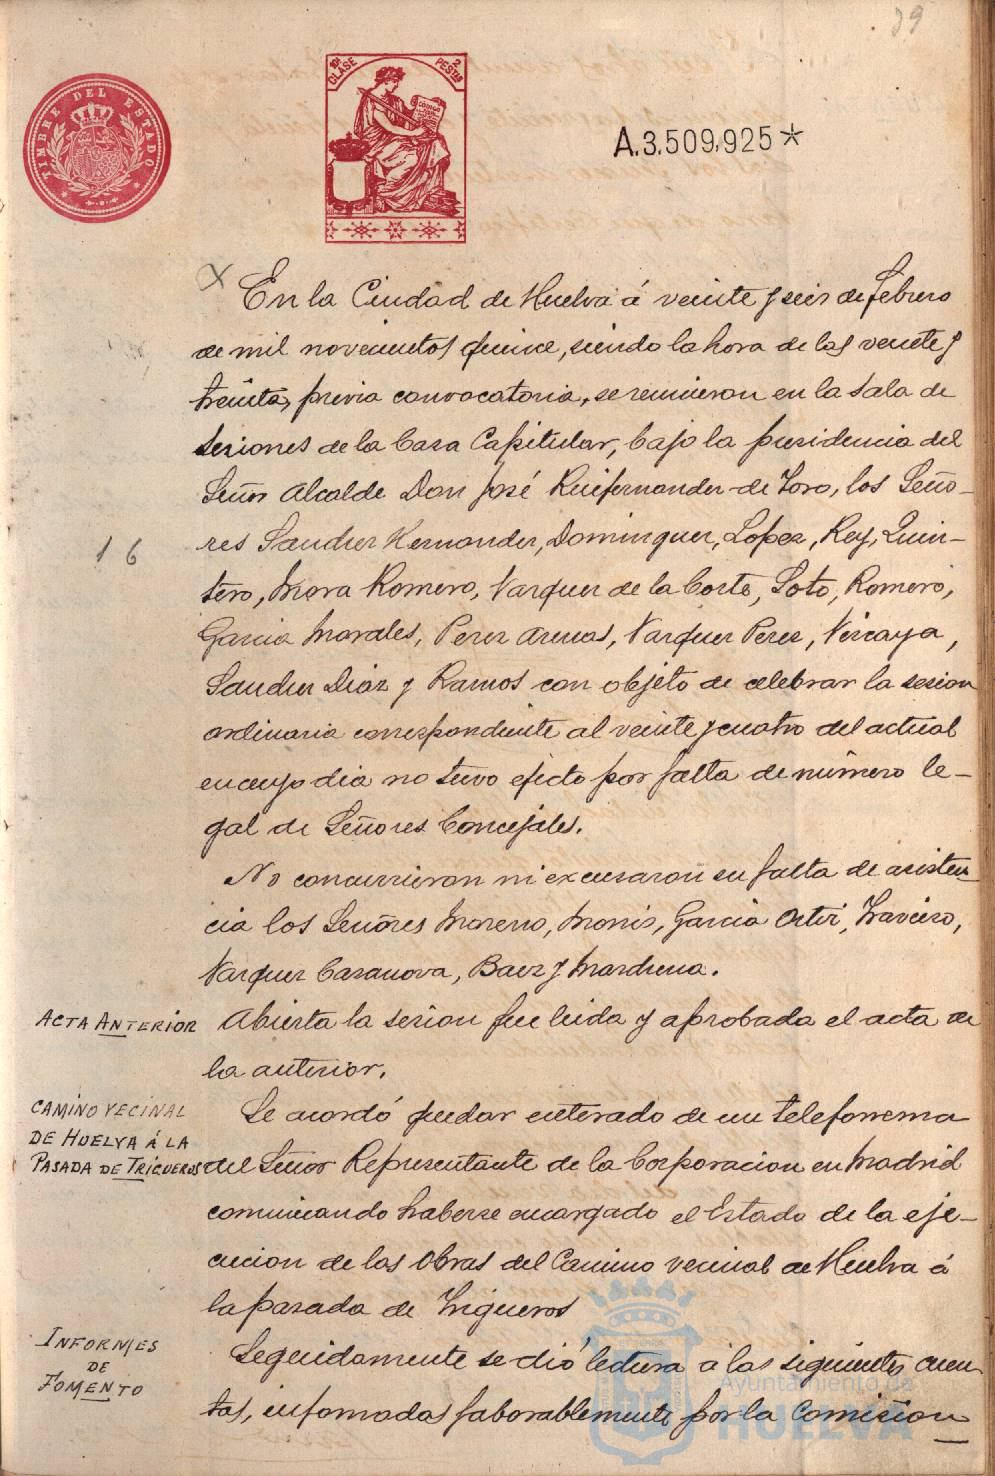 39
TIMBRE DEL ESTADO
10ª CLASE
2 PESTAS
CODIGO
A.3.509,925*
En la Ciudad de Huelva á veinte y seis de Febrero
de mil novecientos quince, siendo la hora de las veinte y
treinta, previa convocatoria, se reunieron en la Sala de
Sesiones de la Casa Capitular, bajo la presidencia del
Señor Alcalde Don José Ruifernandez de Toro, los Seño-
16
res Sanchez Hernandez, Dominguez, Lopez, Rey, Quin-
tero, Mora Romero, Vazquez de la Corte, Soto, Romero,
Garcia Morales, Perez Arenas, Vazquez Perez, Vizcaya,
Sanchez Diaz y Ramos con objeto de celebrar la sesion
ordinaria correspondiente al veinte y cuatro del actual
en cuyo dia no tuvo efecto por falta de número le-
gal de Señores Concejales.
No concurrieron ni excusaron su falta de asisten-
cia los Señores Moreno, Monis, Garcia Ortiz, Travieso,
Vazquez Casanova, Baez y Mardrena.
ACTA ANTERIOR
Abierta la sesion fue leida y aprobada el acta de
la anterior.
CAMINO VECINAL
DE HUELVA Á LA
PASADA DE TRIGUEROS
Se acordó quedar enterado de un telefonema
del Señor Representante de la Corporacion en Madrid
comunicando haberse encargado el Estado de la eje-
cucion de las obras del Camino vecinal de Huelva á
la pasada de Trigueros
INFORMES
DE
FOMENTO
Seguidamente se dió lectura á las siguientes cuen-
tas, informadas faborablemente por la Comision
Ayuntamiento de
HUELVA